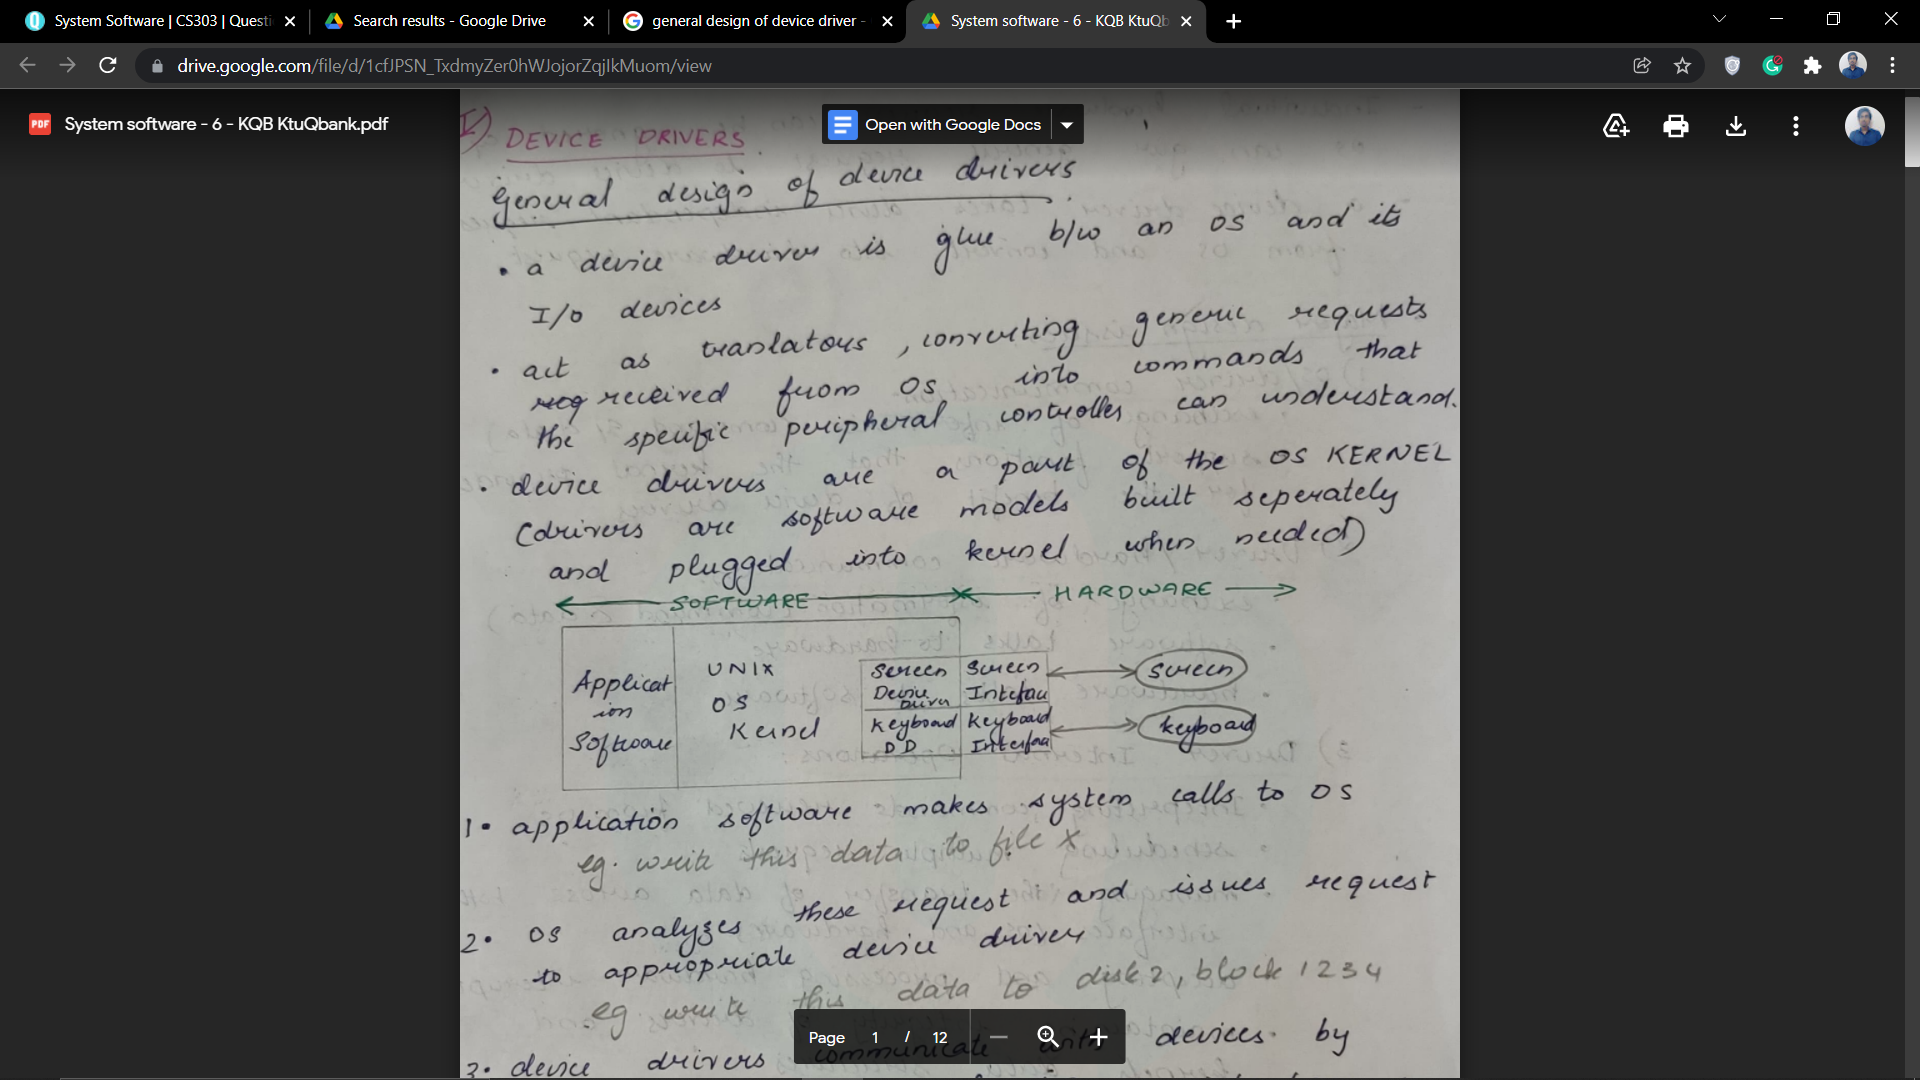 System Software | CS303 | Questi
Search results - Google Drive
general design of device driver -
System software - 6 - KQB KtuQb
drive.google.com/file/d/1cfJPSN_TxdmyZer0hWJojorZqjIkMuom/view
PDF System software - 6 - KQB KtuQbank.pdf
Open with Google Docs
I) DEVICE DRIVERS
general design of device drivers
• a device driver is glue b/w an OS and its
I/O devices
• act as translators, converting generic requests
received from OS into commands that
the specific peripheral controller can understand.
• device drivers are a part of the OS KERNEL
(drivers are software models built seperately
and plugged into kernel when needed)
SOFTWARE HARDWARE
Applicat
ion
Software
UNIX
OS
Kernel
Screen
Device
Driver
Screen
Interface
screen
Keyboard
DD
Keyboard
Interface
keyboard
1• application software makes system calls to OS
eg. write this data to file X
2• OS analyzes these request and issues request
to appropriate device driver
eg write this data to disk 2, block 1234
3• device drivers communicate with devices by
Page 1 / 12